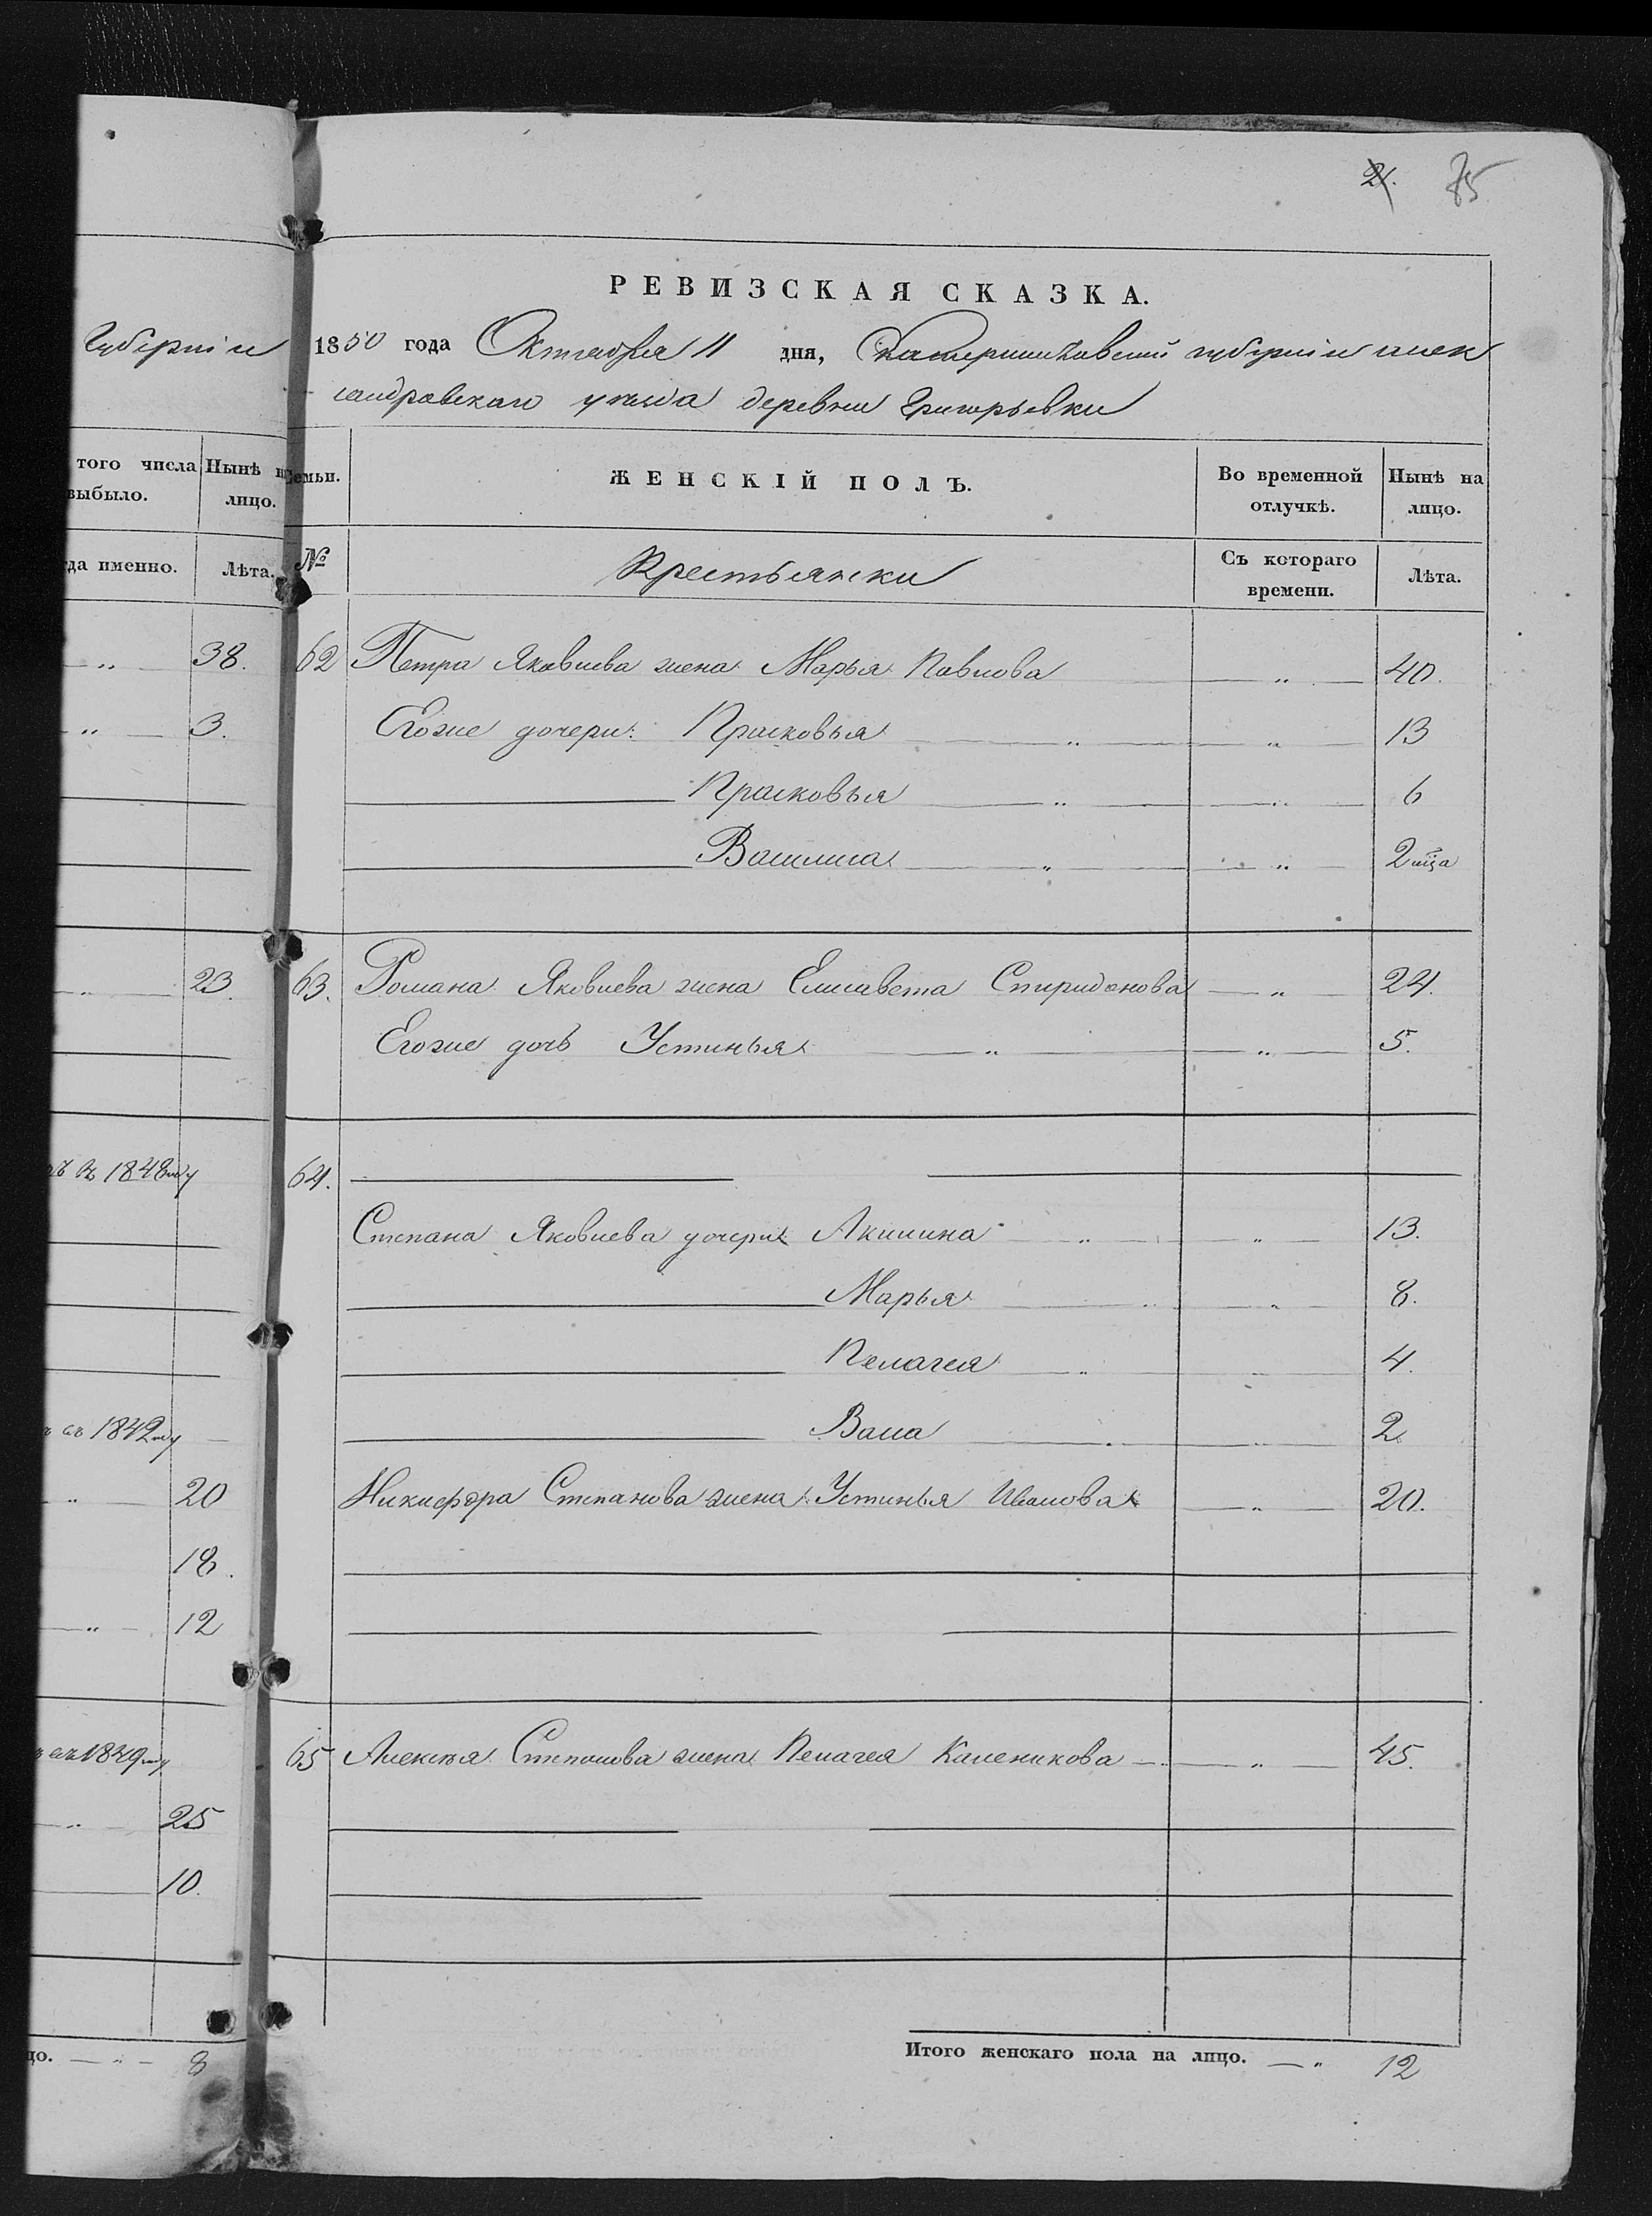 21. 75
РЕВИЗСКАЯ СКАЗКА.
Губерніи
1850 года Октября 11 дня, Екатеринославской губерніи алек
сандровскаго уѣзда деревни Григорьевки
того числа выбыло.
Нынѣ на лицо.
Семьи.
ЖЕНСКІЙ ПОЛЪ.
Во временной отлучкѣ.
Нынѣ на лицо.
да именно.
Лѣта.
№
Крестьянки
Съ котораго времени.
Лѣта.
" 38. 62 Петра Яковлева жена Марья Павлова " 40.
" 3. Егоже дочери: Прасковья " " 13
Прасковья " " 6
Василиса " " 2 мца
" 23. 63. Романа Яковлева жена Елисавета Спиридонова " 24.
Егоже дочь Устинья " " 5.
въ 1848му 64.
Степана Яковлева дочери Акилина " " 13.
Марья " " 8.
Пелагея " " 4.
1842му Васа " " 2
" 20 Никифора Степанова жена Устинья Иванова " 20.
18.
" 12
1849му 65 Алексѣя Степанова жена Пелагея Каленикова " 45.
" 25
10.
цо. " 8
Итого женскаго пола на лицо. " 12